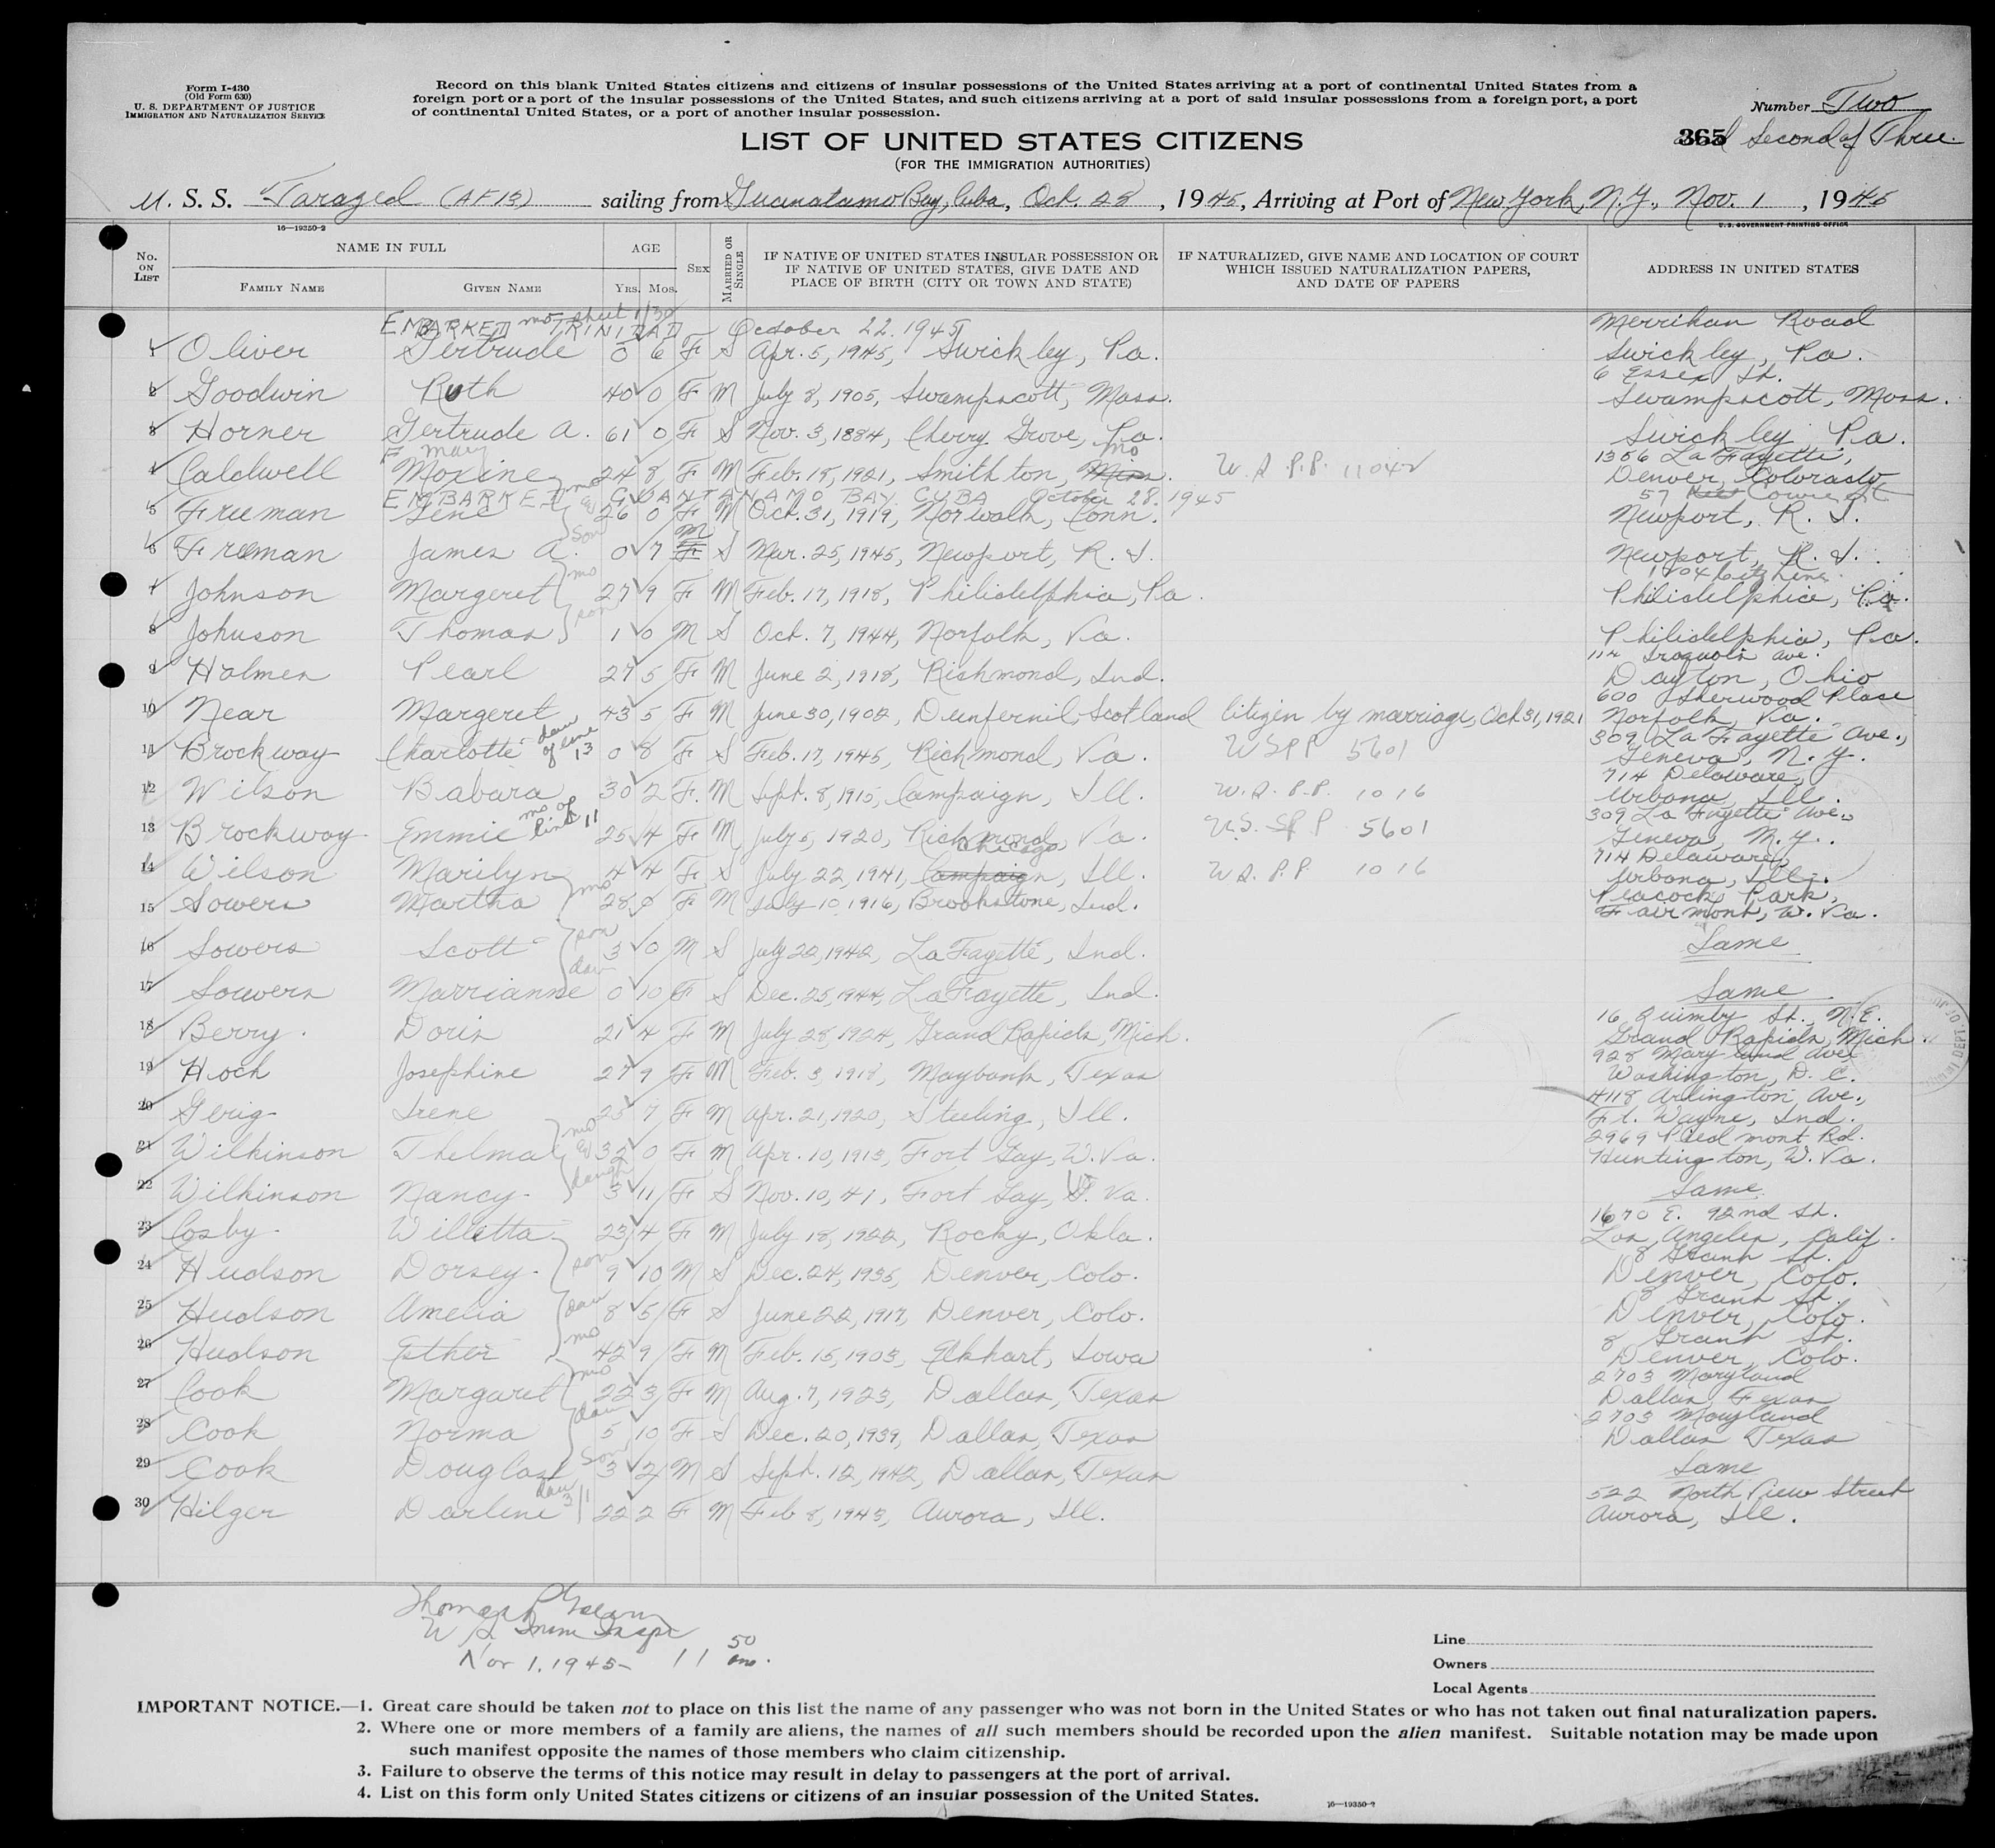 Form I-430
(Old Form 630)
U. S. DEPARTMENT OF JUSTICE
IMMIGRATION AND NATURALIZATION SERVICE
Record on this blank United States citizens and citizens of insular possessions of the United States arriving at a port of continental United States from a
foreign port or a port of the insular possessions of the United States, and such citizens arriving at a port of said insular possessions from a foreign port, a port
of continental United States, or a port of another insular possession.
Number Two
365 Second of Three
LIST OF UNITED STATES CITIZENS
(FOR THE IMMIGRATION AUTHORITIES)
U. S. S. Tarazed (AF 13) sailing from Guanatamo Bay, Cuba, Oct. 28, 1945, Arriving at Port of New York, N.Y., Nov. 1, 1945
16—19350-2
U. S. GOVERNMENT PRINTING OFFICE
No. ON LIST
NAME IN FULL
FAMILY NAME
GIVEN NAME
AGE
YRS. MOS.
SEX
MARRIED OR SINGLE
IF NATIVE OF UNITED STATES INSULAR POSSESSION OR
IF NATIVE OF UNITED STATES, GIVE DATE AND
PLACE OF BIRTH (CITY OR TOWN AND STATE)
IF NATURALIZED, GIVE NAME AND LOCATION OF COURT
WHICH ISSUED NATURALIZATION PAPERS,
AND DATE OF PAPERS
ADDRESS IN UNITED STATES
mo sheet 1/30
EMBARKED TRINIDAD October 22. 1945 Merrihan Road
1 Oliver Gertrude 0 6 F S Apr. 5, 1945, Swickley, Pa. Swickley, Pa.
6 Essex St.
2 Goodwin Ruth 40 0 F M July 8, 1905, Swampscott, Mass. Swampscott, Mass.
3 Horner Gertrude A. 61 0 F S Nov. 3, 1884, Cherry Grove, Pa. Swickley, Pa.
F Mary Mo 1356 La Fayette,
4 Caldwell Moxine 24 8 F M Feb. 15, 1921, Smithton, Miss. U.S.P.P. 11042 Denver, Colorado
EMBARKED GUANTANAMO BAY CUBA October 28. 1945 57
5 Freeman Gene mo & 26 0 F M Oct. 31, 1919, Norwalk, Conn. Newport, R. I.
6 Freeman James A. son 0 7 M F S Mar. 25, 1945, Newport, R. I. Newport, R. I.
7 Johnson Margeret mo 27 9 F M Feb. 17, 1918, Philidelphia, Pa. Philidelphia, Pa.
8 Johnson Thomas son 1 0 M S Oct. 7, 1944, Norfolk, Va. Philidelphia, Pa.
Iroquois Ave.
9 Holmes Pearl 27 5 F M June 2, 1918, Richmond, Ind. Dayton, Ohio
600 Sherwood Place
10 Near Margeret 43 5 F M June 30, 1902, Dunfernil, Scotland Citizen by marriage, Oct 31, 1921 Norfolk, Va.
309 La Fayette Ave.,
11 Brockway Charlotte dau of line 13 0 8 F S Feb. 17, 1945, Richmond, Va. USPP 5601 Geneva, N. Y.
714 Delaware,
12 Wilson Babara 30 2 F. M Sept. 8, 1915, Campaign, Ill. U.S.P.P. 1016 Urbana, Ill.
309 La Fayette Ave.
13 Brockway Emmie mo of line 11 25 4 F M July 5, 1920, Richmond, Va. U.S. P P 5601 Geneva, N.Y.
Chicago 714 Delaware,
14 Wilson Marilyn 4 4 F S July 22, 1941, Campaign, Ill. U.S. P.P. 1016 Urbana, Ill.
Peacock Park,
15 Sowers Martha mo 28 0 F M July 10, 1916, Brookstone, Ind. Fairmont, W. Va.
16 Sowers Scott son 3 0 M S July 22, 1942, LaFayette, Ind. Same
17 Sowers Marrianne dau 0 10 F S Dec. 25, 1944, LaFayette, Ind. Same
16 Quimby St., N.E.
18 Berry Doris 21 4 F M July 28, 1924, Grand Rapids, Mich. Grand Rapids, Mich.
928 Maryland Ave
19 Hoch Josephine 27 9 F M Feb. 3, 1918, Maybank, Texas Washington, D. C.
4118 Arlington Ave.,
20 Gerig Irene 25 7 F M Apr. 21, 1920, Steeling, Ill. Ft. Wayne, Ind.
2969 Piedmont Rd.
21 Wilkinson Thelma mo & 32 0 F M Apr. 10, 1913, Fort Gay, W. Va. Huntington, W. Va.
22 Wilkinson Nancy daugh 3 11 F S Nov. 10, 41, Fort Gay, W. Va. Same
1670 E. 92nd St.
23 Cosby Willetta 23 4 F M July 18, 1922, Rocky, Okla. Los Angeles, Calif.
8 Grant St.
24 Hudson Dorsey son 9 10 M S Dec. 24, 1935, Denver, Colo. Denver, Colo.
8 Grant St.
25 Hudson Amelia dau 8 5 F S June 22, 1917, Denver, Colo. Denver, Colo.
8 Grant St.
26 Hudson Esther mo 42 9 F M Feb. 15, 1903, Elkhart, Iowa Denver, Colo.
2703 Maryland
27 Cook Margaret mo 22 3 F M Aug. 7, 1923, Dallas, Texas Dallas, Texas
2703 Maryland
28 Cook Norma dau 5 10 F S Dec. 20, 1939, Dallas, Texas Dallas Texas
29 Cook Douglas son 3 2 M S Sept. 12, 1942, Dallas, Texas Same
522 North View Street
30 Hilger Darlene dau 3/1 22 2 F M Feb 8, 1943, Aurora, Ill. Aurora, Ill.
Thomas
U S Imm Inspr
Nov 1. 1945 - 11 50 am.
Line
Owners
Local Agents
IMPORTANT NOTICE.—1. Great care should be taken not to place on this list the name of any passenger who was not born in the United States or who has not taken out final naturalization papers.
2. Where one or more members of a family are aliens, the names of all such members should be recorded upon the alien manifest. Suitable notation may be made upon
such manifest opposite the names of those members who claim citizenship.
3. Failure to observe the terms of this notice may result in delay to passengers at the port of arrival.
4. List on this form only United States citizens or citizens of an insular possession of the United States.
16—19350-2